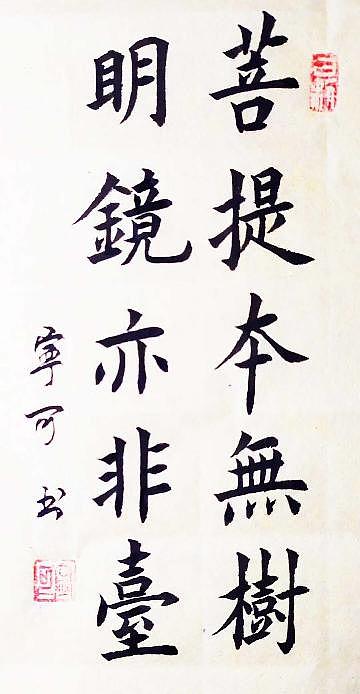 菩提本無樹
明鏡亦非臺
寧可书